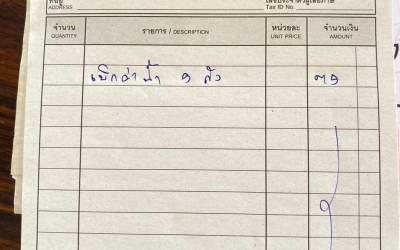 ที่อยู่ เลขประจำตัวผู้เสียภาษี
ADDRESS Tax ID No.
จำนวน รายการ / DESCRIPTION หน่วยละ จำนวนเงิน
QUANTITY UNIT PRICE AMOUNT
เบิกค่าน้ำ ๑ ลัง